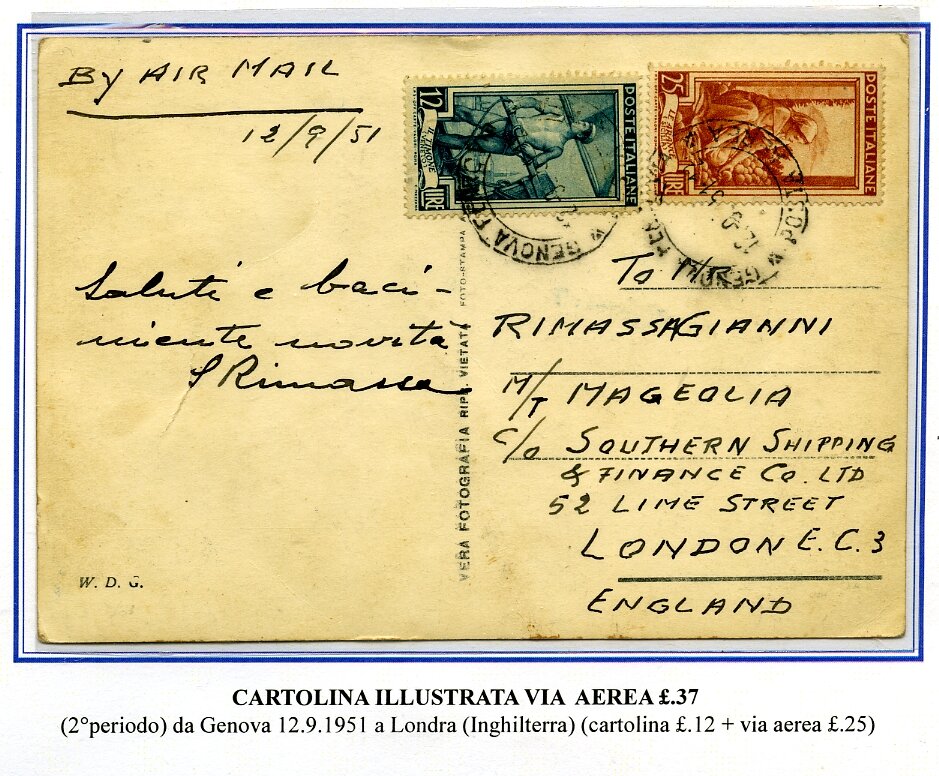 By AIR MAIL
12/9/51
12
LIRE
POSTE ITALIANE
25
LIRE
POSTE ITALIANE
GENOVA
GENOVA
POSTA
Saluti e baci -
niente novità
S Rimassa
VERA FOTOGRAFIA RIPR. VIETATA FOTO-STAMPA
W. D. G.
To M/R
RIMASSA GIANNI
M/T MAGEOLIA
C/O SOUTHERN SHIPPING
& FINANCE CO. LTD
52 LIME STREET
LONDON E.C.3
ENGLAND
CARTOLINA ILLUSTRATA VIA AEREA £.37
(2°periodo) da Genova 12.9.1951 a Londra (Inghilterra) (cartolina £.12 + via aerea £.25)